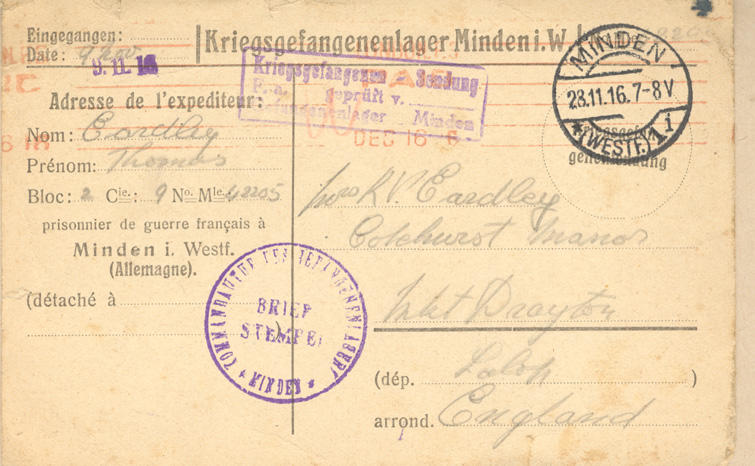 Eingegangen:
Date: 9 nov
9.11.16
Kriegsgefangenenlager Minden i. W.
Kriegsgefangenen Sendung
geprüft v.
Minden
DEC 16 6
MINDEN
23.11.16. 7-8V.
*(WESTF.)1 i
Adresse de l'expediteur:
Nom: Eardley
Prénom: Thomas
Bloc: 2 Cie.: 9 No. Mle. 42205
prisonnier de guerre français à
Minden i. Westf.
(Allemagne).
(détaché à
KOMMANDANTUR DES GEFANGENENLAGERS
BRIEF
STEMPEL
* MINDEN *
Mrs R V. Eardley
Colehurst Manor
Mkt Drayton
(dép. Salop )
arrond. England